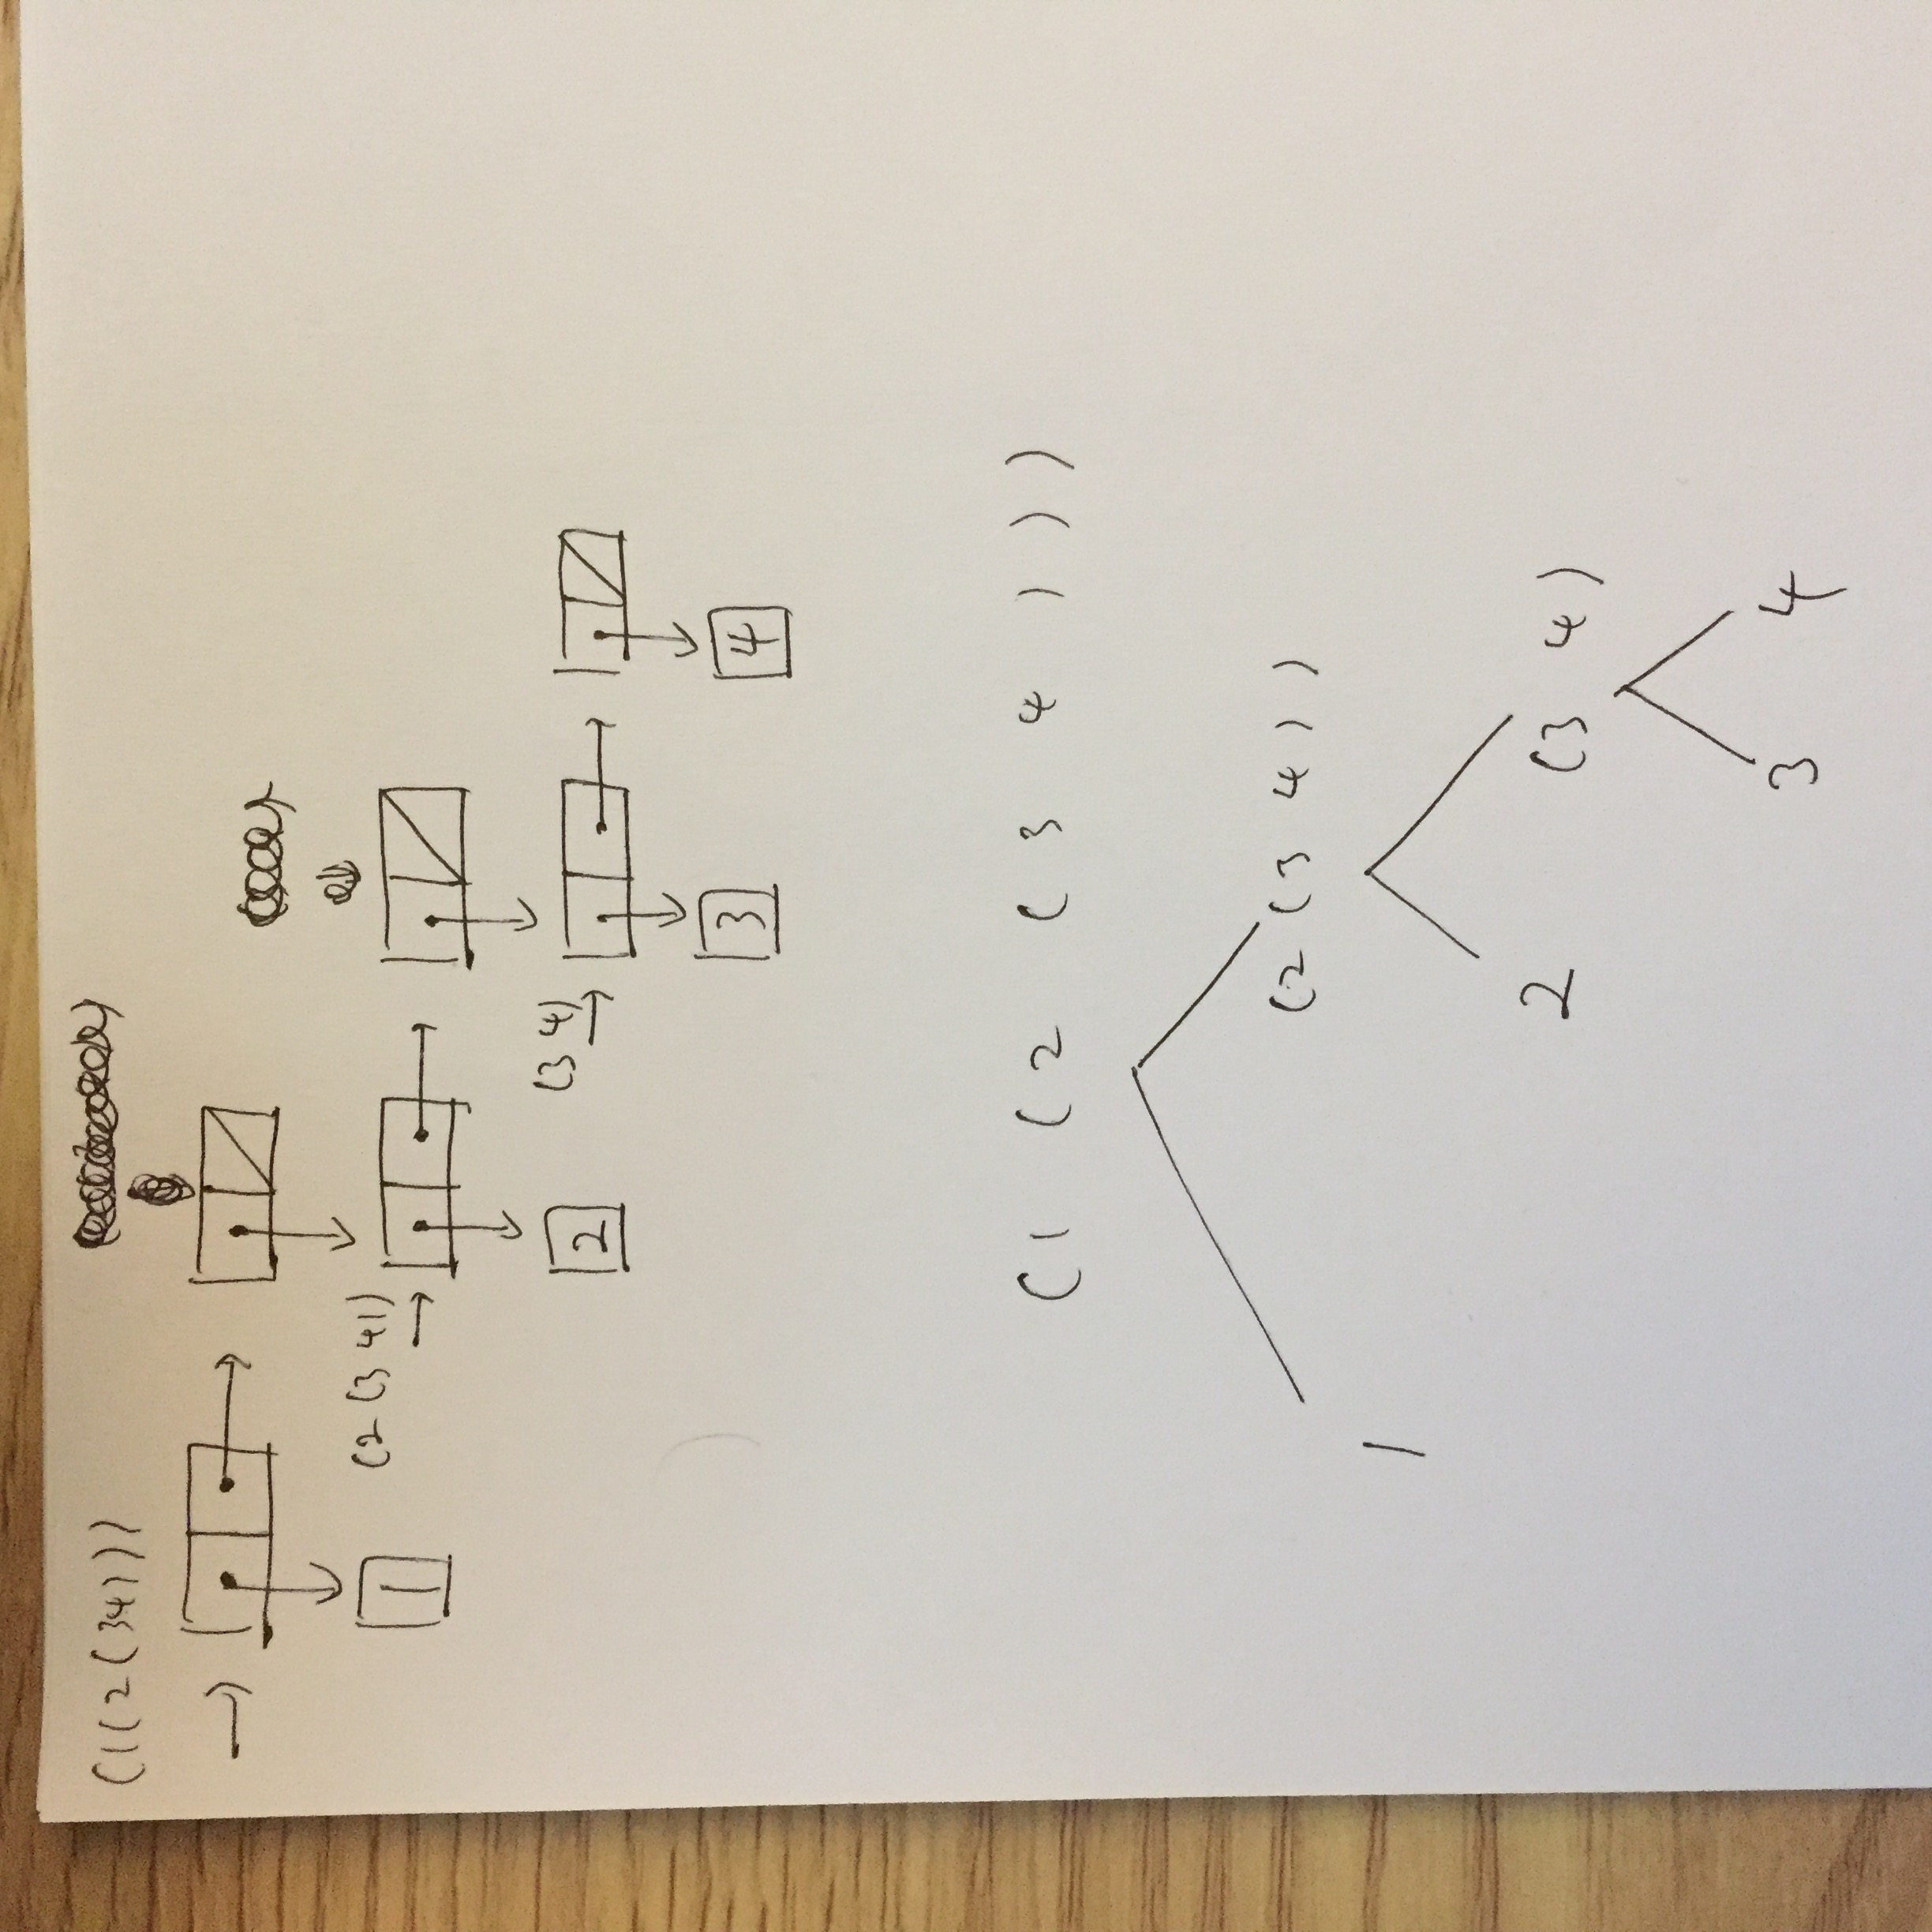 (1(2(34)))
1
(2 (3 4))
2
(3 4)
3
4
(1 (2 (3 4)))
(2 (3 4))
1
2
(3 4)
3
4